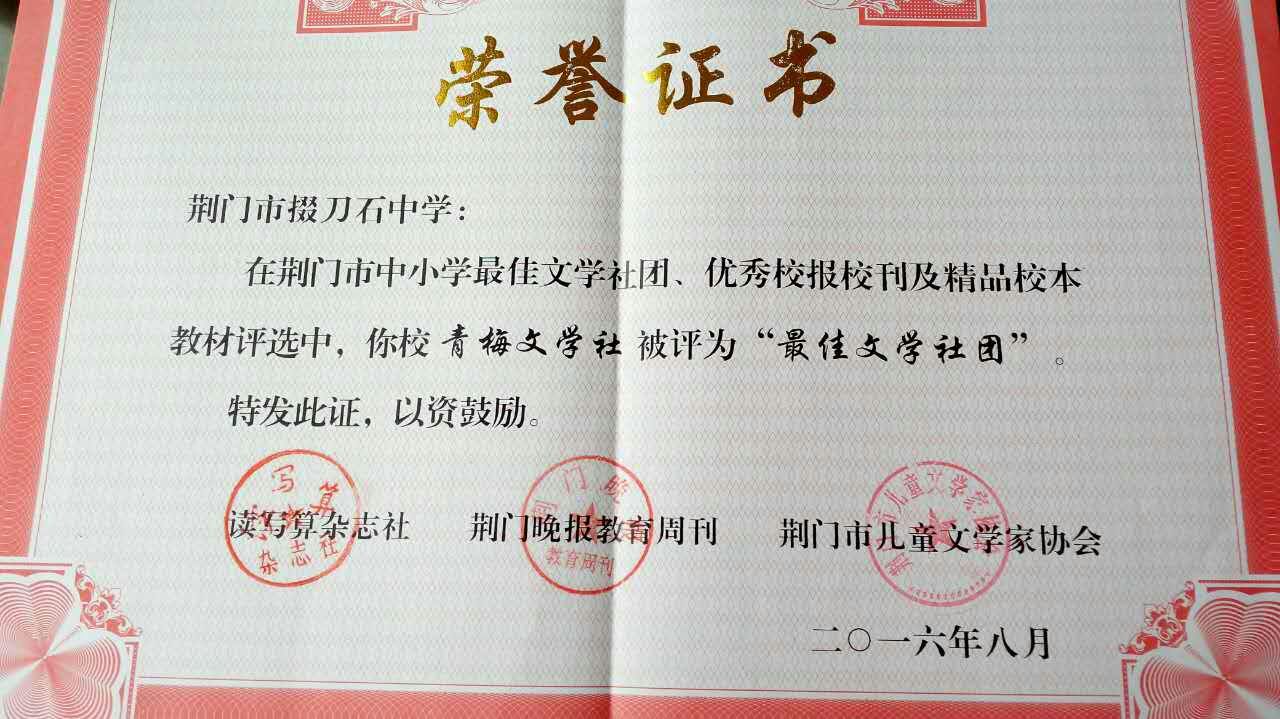 荣誉证书
荆门市掇刀石中学：
在荆门市中小学最佳文学社团、优秀校报校刊及精品校本
教材评选中，你校 青梅文学社 被评为“最佳文学社团”。
特发此证，以资鼓励。
读写算杂志社 荆门晚报教育周刊 荆门市儿童文学家协会
写算
杂志社
荆门晚报
教育周刊
荆门市儿童文学家协会
二〇一六年八月